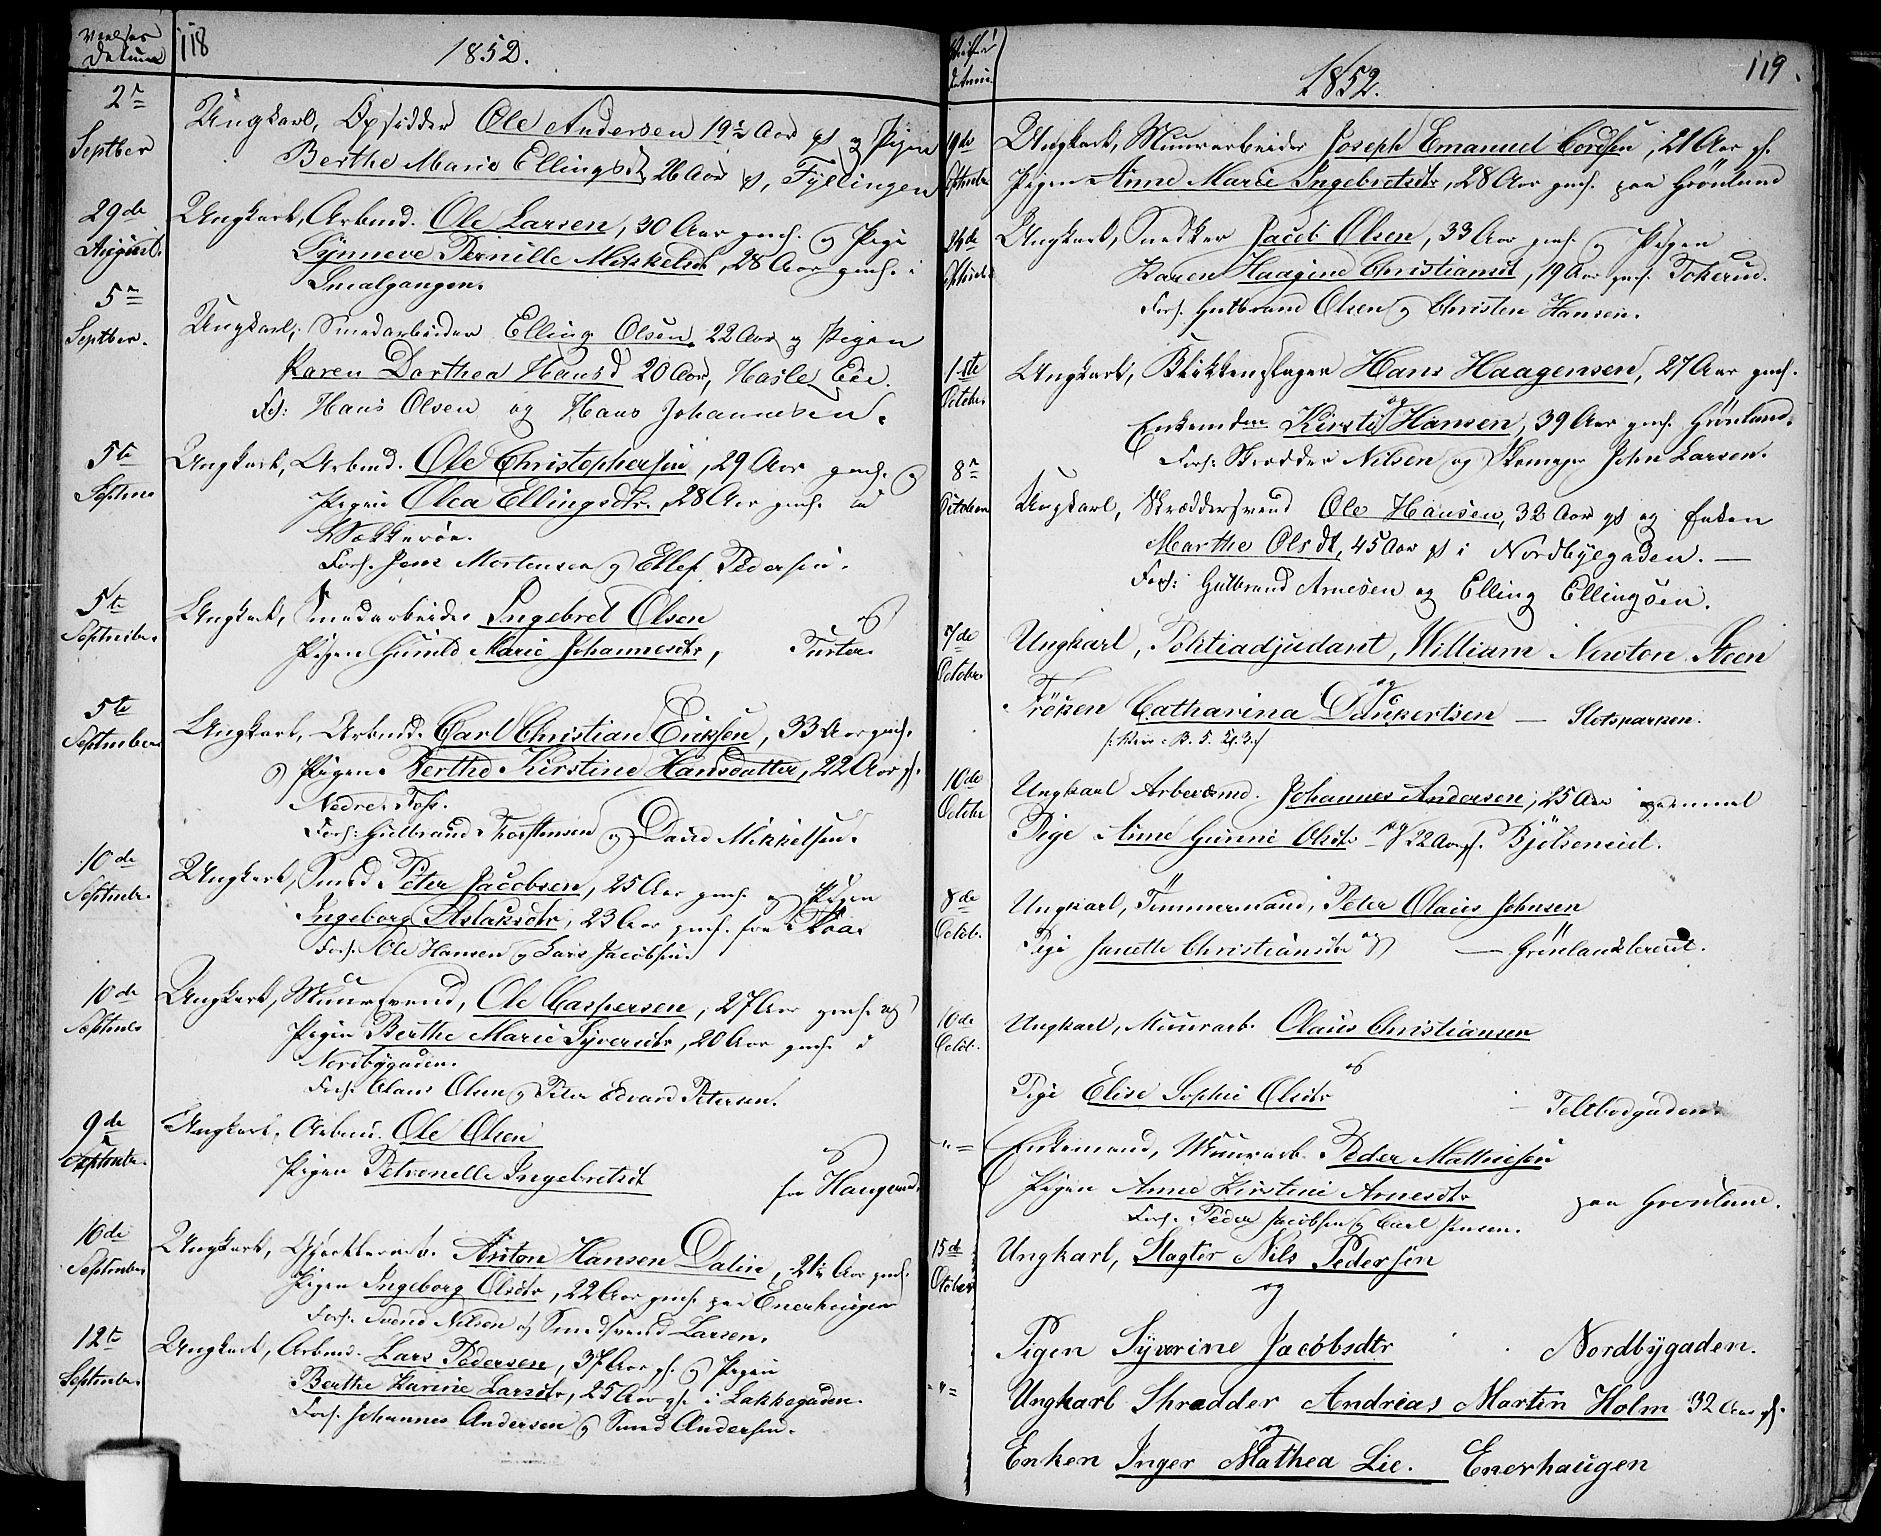 Vielses Datum 118 1852.
2n Septber Ungkarl, Opsidder Ole Andersen 19½ Aar gl og Pigen
Berthe Marie Ellingsd 26 Aar gl, Fyllingen
29de August. Ungkarl, Arbmd. Ole Larsen, 30 Aar gml. og Pige
Synneve Pernille Mikkelsd, 28 Aar gml. i
Smalgangen.
5n Septber. Ungkarl, Smedarbeider Elling Olsen, 22 Aar og Pigen
Karen Dorthea Hansd 20 Aar, Hasle Eie.
Forl: Hans Olsen og Hans Johannesen.
5te Septmb Ungkarl, Arbmd. Ole Christophersen, 29 Aar gml. og
Pigen Olea Ellingsdtr. 28 Aar gml. ad
Wækkerøe.
Forl. Jens Mortensen og Ellef Pedersen.
5te September Ungkarl, Smedarbeider Ingebret Olsen og
Pigen Gunild Marie Johannesdtr,
5te September Ungkarl, Arbmd. Carl Christian Eriksen, 33 Aar gml.
og Pigen Berthe Kirstine Hansdatter, 22 Aar gl.
Nedre Foss.
Forl: Gulbrand Thorstensen og David Mikkelsen.
10de Septembr Ungkarl, Smed Peter Jacobsen, 25 Aar gml. og Pigen
Ingeborg Aslaksdtr, 23 Aar gml. fra
Forl. Ole Hansen og Lars Jacobsen.
10de Septmbr Ungkarl, Muursvend, Ole Caspersen, 27 Aar gml. og
Pigen Berthe Marie Syversdtr, 20 Aar gml. i
Nordbygaden.
Forl. Olaus Olsen og Peter Edvard Petersen.
9de Septembr. Ungkarl, Arbmd. Ole Olsen og
Pigen Petronelle Ingebretsd fra Haugerud.
10de September Ungkarl, Anton Hansen Dalin, 21½ Aar gml.
Pigen Ingeborg Olsdtr, 22 Aar gml. paa Enerhaugen
Forl. Svend Nilsen og Smedsvend Larsen.
12te September Ungkarl, Arbmd. Lars Pedersen, 37 Aar gl. og Pigen
Berthe Karine Larsdtr, 25 Aar gl. i Lakkegaden.
Forl. Johannes Andersen og Smed Andersen.
Vielse datum 1852. 119.
19de Septembr Ungkarl, Muurarbeider Joseph Emanuel Cordsen, 21 Aar gl.
Pigen Anne Marie Ingebretsdtr, 28 Aar gml. paa Grønland
24de Septembr Ungkarl, Snedker Jacob Olsen, 33 Aar gml. og Pigen
Karen Haagine Christiansd, 19 Aar gml. Tokerud.
Forl. Gulbrand Olsen og Christen Hansen.
1ste October Ungkarl, Blikkenslager Hans Haagensen, 27 Aar gml.
og
Enkemden Kirsti Hansen, 39 Aar gml. Grønland.
Forl: Skrædder Nilsen og Skomager John Larsen.
8n October Ungkarl, Skræddersvend Ole Hansen, 32 Aar gl og Enken
Marthe Olsdt, 45 Aar gl i Nordbyegaden. —
Forl: Gulbrand Arnesen og Elling Ellingsen.
7de October Ungkarl, Politiadjudant, William Newton Steen
og
Frøken Catharina Danckertsen — Slotsparken.
10de October Ungkarl Arbeidsmd. Johannes Andersen, 25 Aar gammel
Pige Anne Gunni Olsdtr og 22 Aar gl. Bjølseneiet.
8de Octob. Ungkarl, Tømmermand, Peter Olaus Johnsen
Pige Janette Christiansdtr og — Grønlandsleret.
10de Octob. Ungkarl, Muurarb. Olaus Christiansen
og
Pige Elise Sophie Olsdtr — Teltbodgaden
" = Enkemand, Muurarb. Peder Mathiesen
Pigen Anne Kirstine Arnesdtr paa Grønland.
Forl. Peder Jacobsen og Carl Jensen.
15de October Ungkarl, Slagter Nils Pedersen
og
Pigen Syverine Jacobsdtr Nordbygaden.
- " = Ungkarl Skrædder Andreas Martin Holm 32 Aar gl.
og
Enken Inger Mathea Lie. Enerhaugen